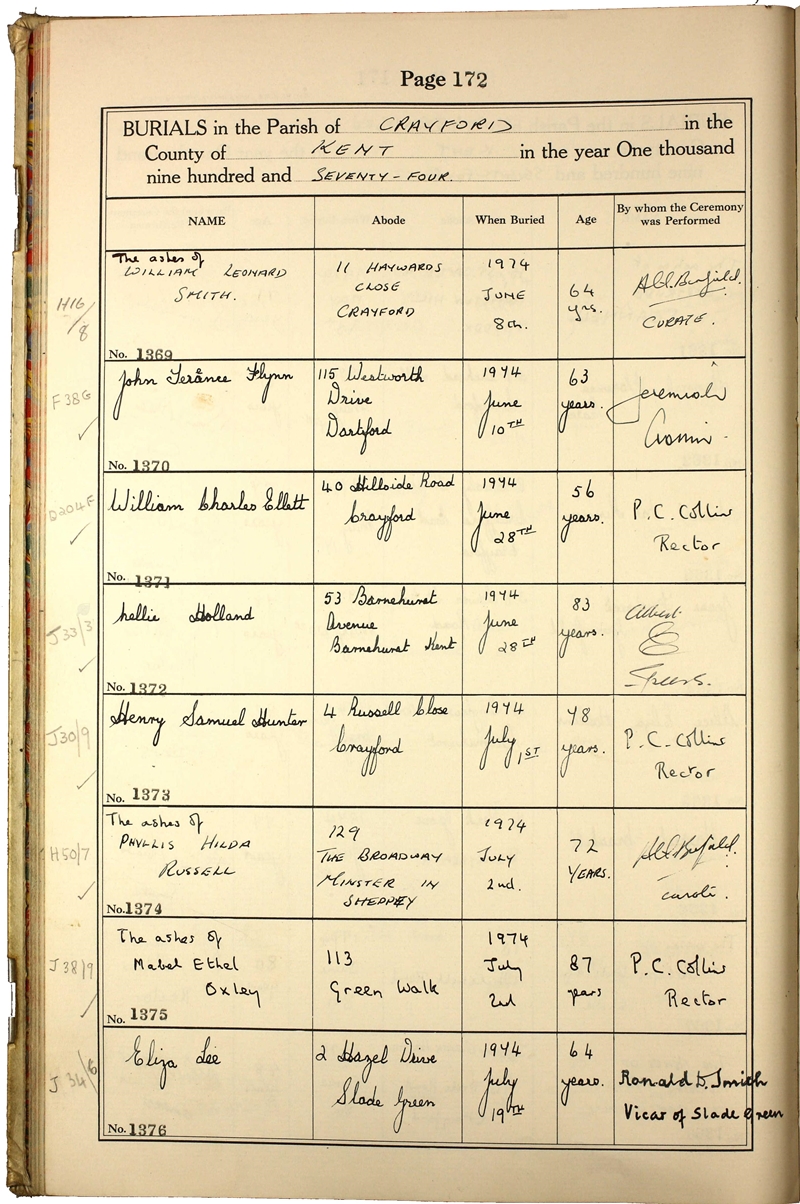 Page 172
BURIALS in the Parish of CRAYFORD in the
County of KENT in the year One thousand
nine hundred and SEVENTY-FOUR.
NAME Abode When Buried Age By whom the Ceremony was Performed
The ashes of
WILLIAM LEONARD
SMITH.
No. 1369
11 HAYWARDS
CLOSE
CRAYFORD
1974
JUNE
8th.
64
yrs.
CURATE.
H16/8
John Terance Flynn
No. 1370
115 Westworth
Drive
Dartford
1974
June
10TH
63
years.
Jeremiah
Cronin
F38G
William Charles Ellett
No. 1371
40 Hillside Road
Crayford
1974
June
28TH
56
years.
P. C. Collins
Rector
D204F
Nellie Holland
No. 1372
53 Barnehurst
Avenue
Barnehurst Kent
1974
June
28TH
83
years.
Albert
E
Speers.
J33/3
Henry Samuel Hunter
No. 1373
4 Russell Close
Crayford
1974
July
1ST
78
years.
P. C. Collins
Rector
J30/9
The ashes of
PHYLLIS HILDA
RUSSELL
No. 1374
129
THE BROADWAY
MINSTER IN
SHEPPEY
1974
JULY
2nd.
72
YEARS.
curate.
H50/7
The ashes of
Mabel Ethel
Oxley
No. 1375
113
Green Walk
1974
July
2nd
87
years
P. C. Collins
Rector
J38/9
Eliza Lee
No. 1376
2 Hazel Drive
Slade Green
1974
July
19TH
64
years.
Ronald D. Smith
Vicar of Slade Green
J34/6